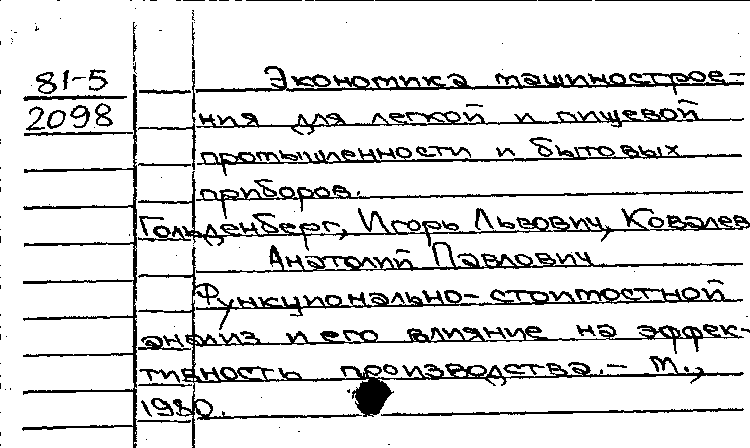 81-5
2098
Экономика машинострое-
ния для легкой и пищевой
промышленности и бытовых
приборов.
Гольденберг, Игорь Львович, Ковалев
Анатолий Павлович
Функционально-стоимостной
анализ и его влияние на эффек-
тивность производства. - М.,
1980.